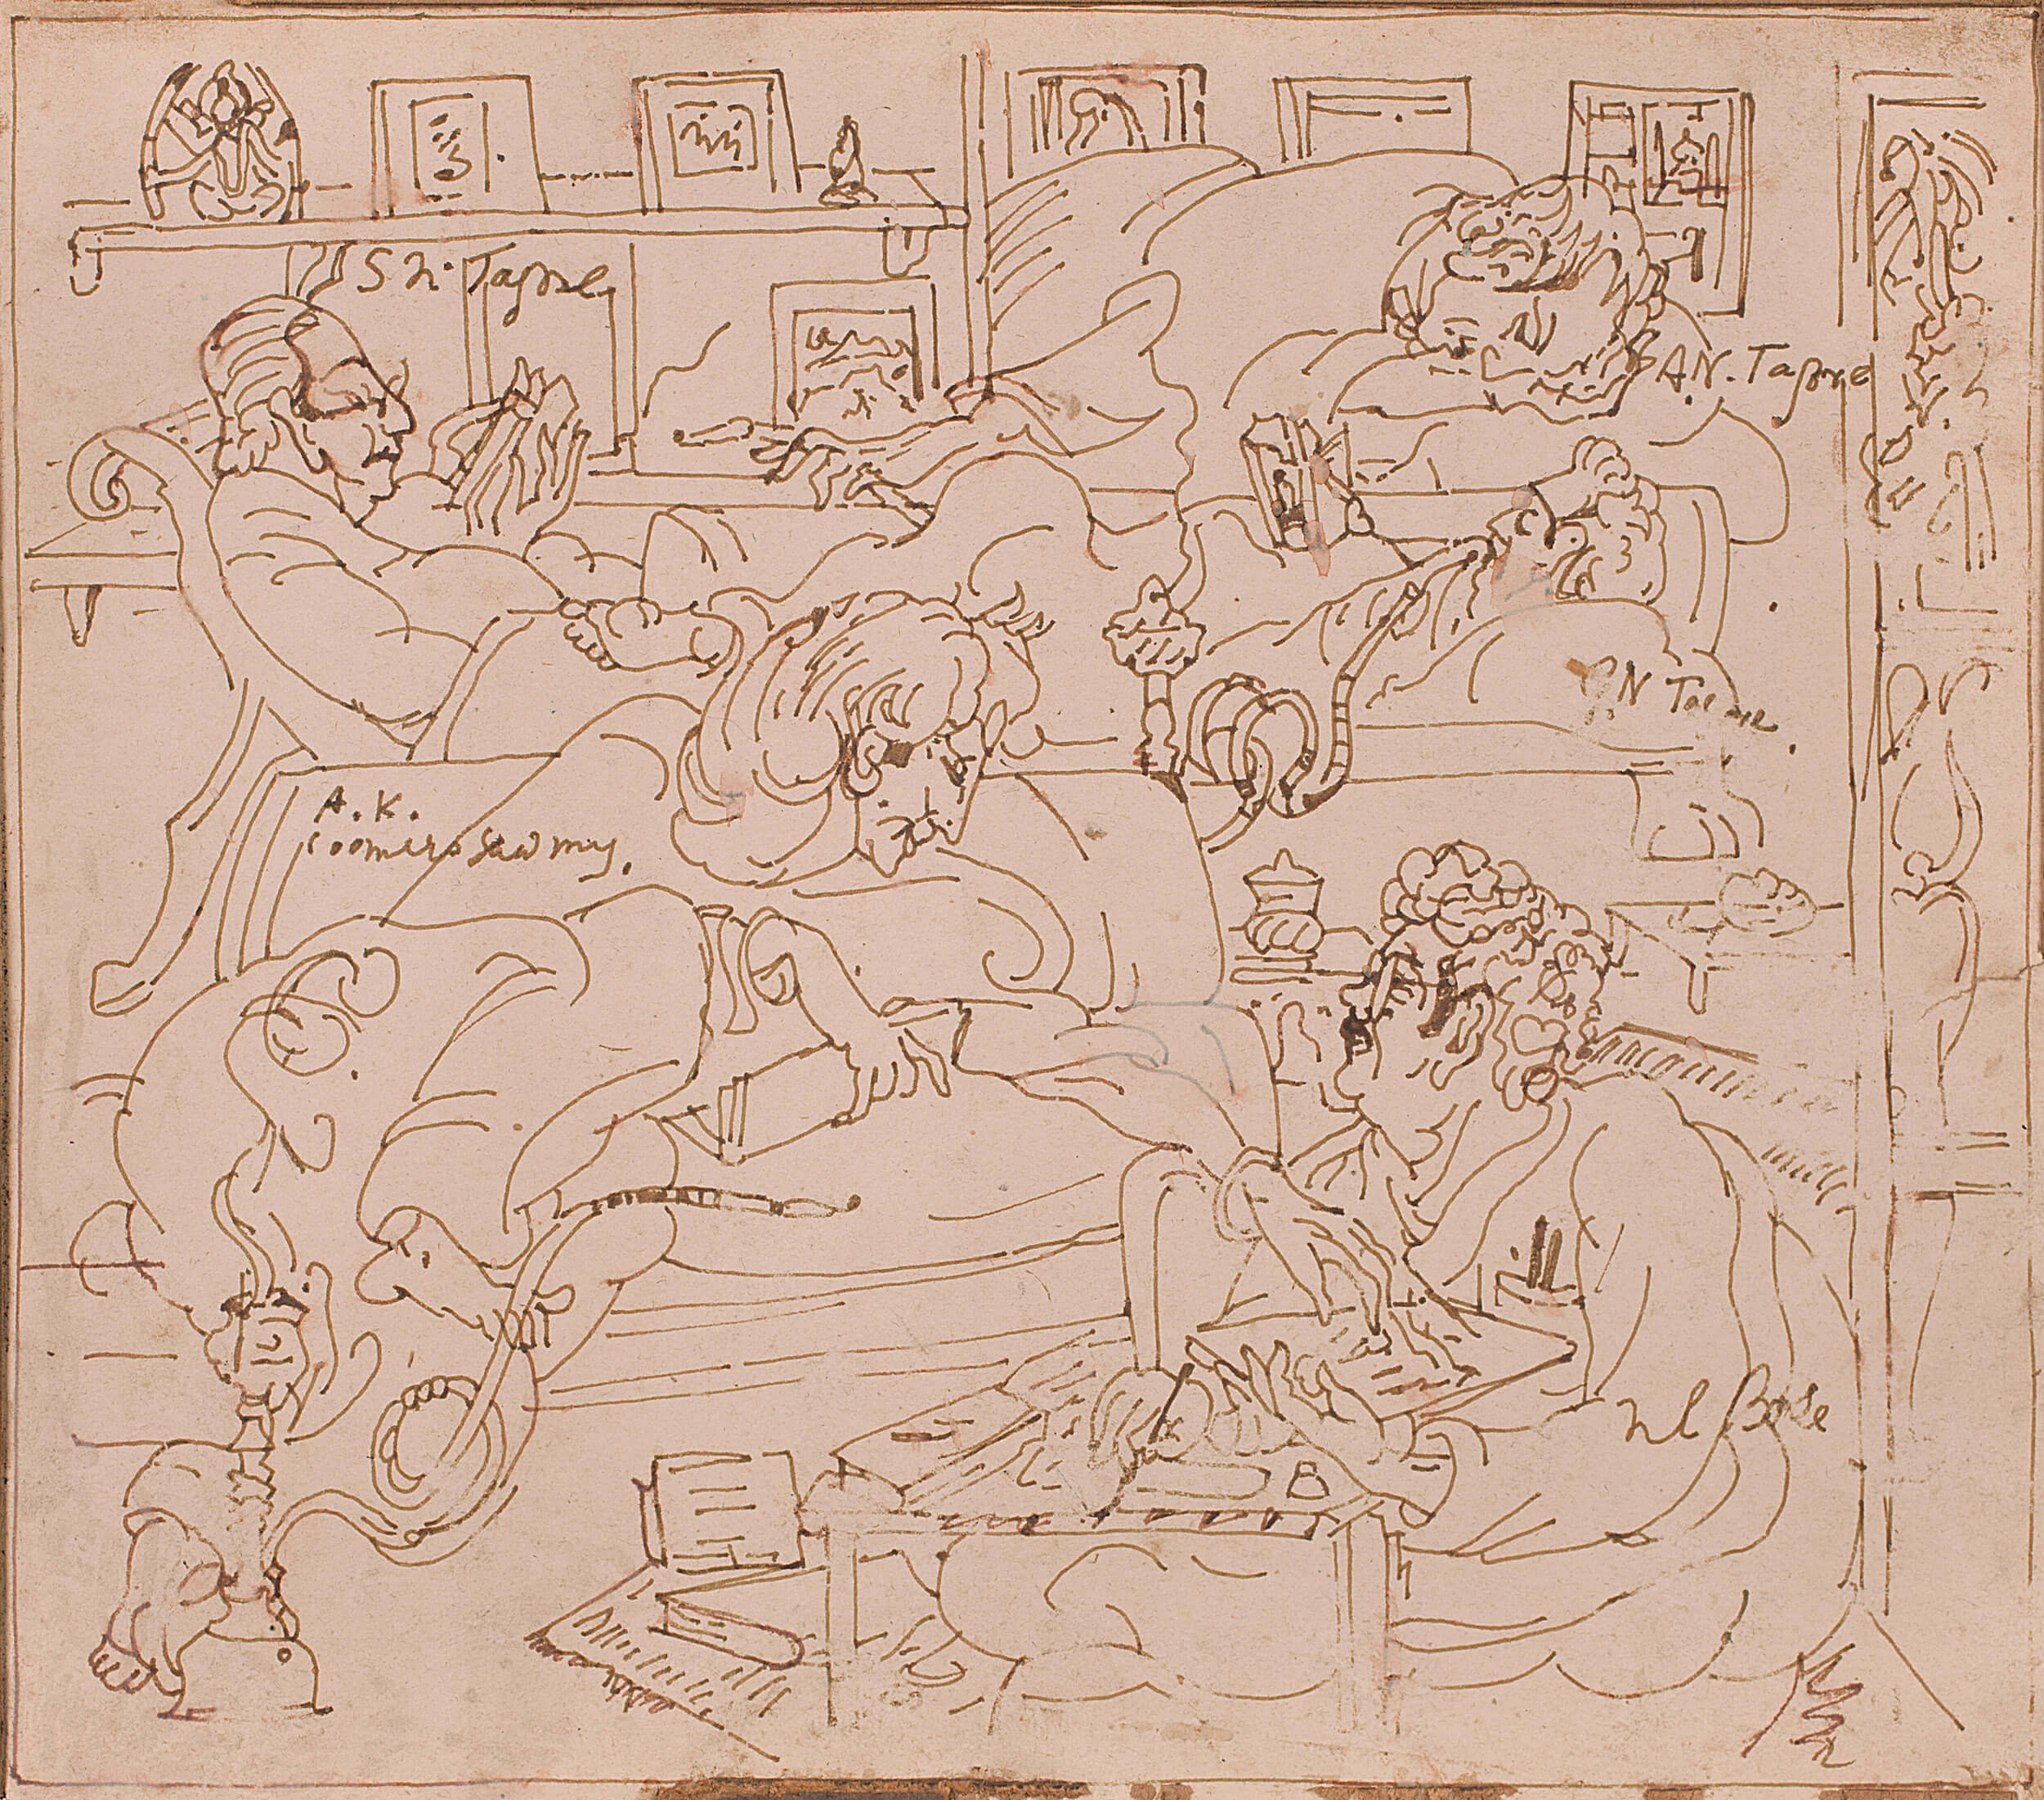 S N. Tagore
A.N. Tagore
G.N Tagore.
A. K.
Coomeroswamy.
Nl Bose